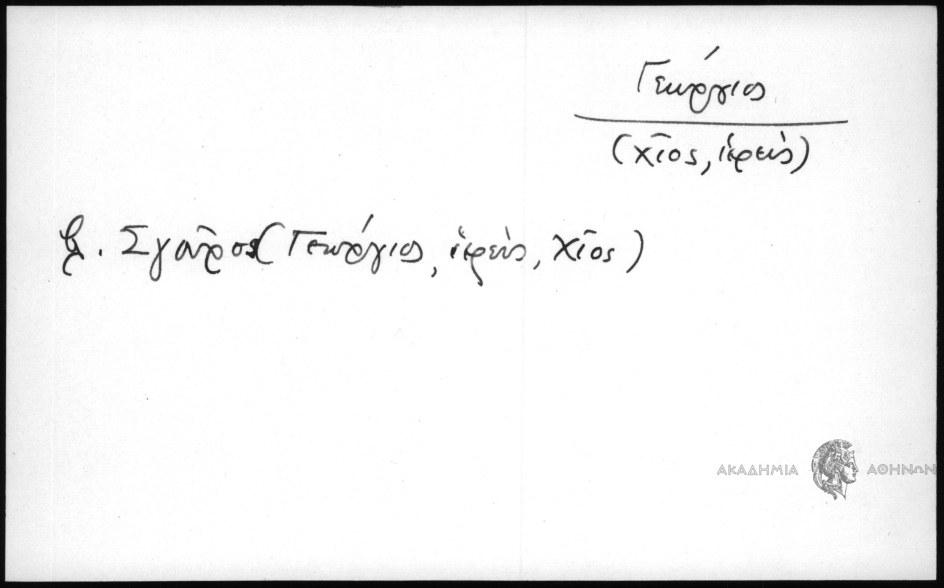 Γεώργιος
(Χῖος, ἱερεὺς)
βλ. Σγοῦρος (Γεώργιος, ἱερεὺς, Χῖος)
ΑΚΑΔΗΜΙΑ ΑΘΗΝΩΝ